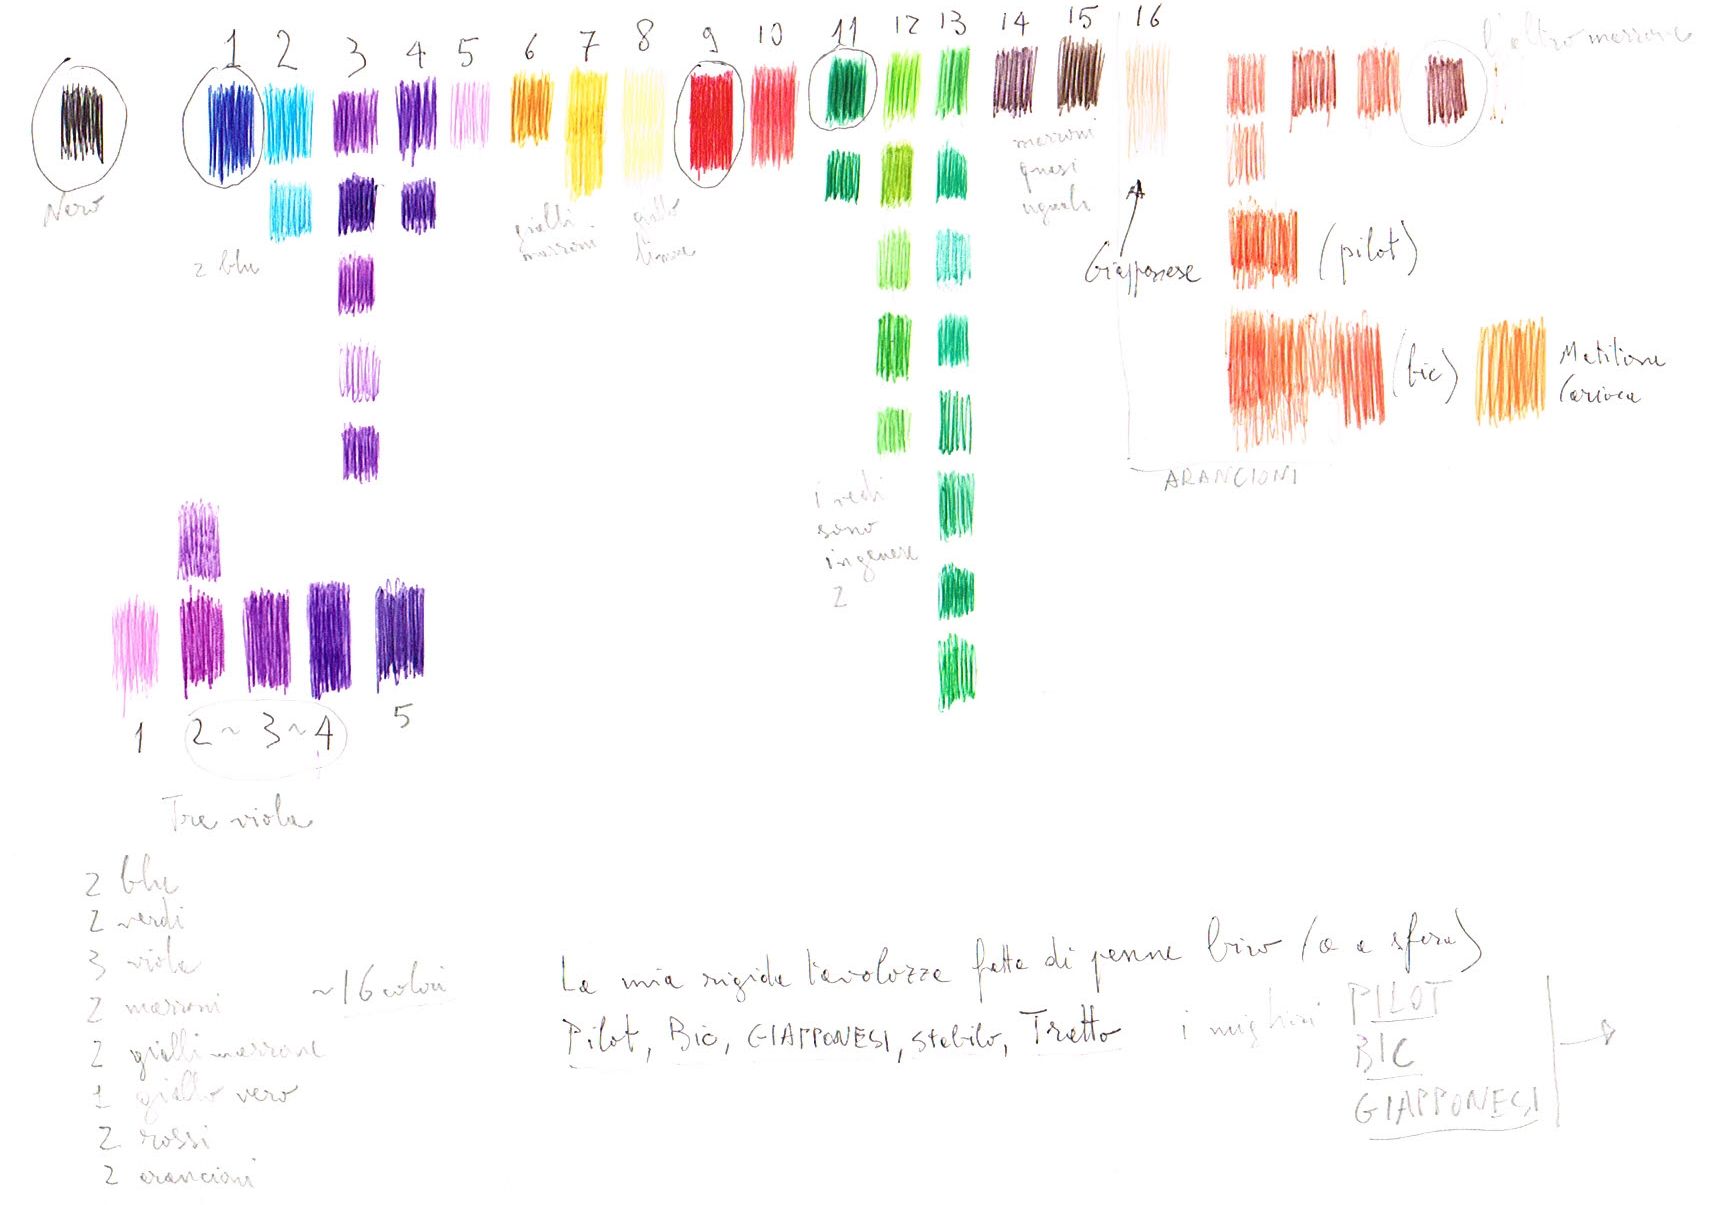 1 2 3 4 5 6 7 8 9 10 11 12 13 14 15 16
l'altro marrone
Nero
2 blu
gialli
marroni
giallo
limone
marroni
quasi
uguali
Giapponese
(pilot)
(bic)
Matitone
Carioca
ARANCIONI
i verdi
sono
in genere
2
1 2 ~ 3 ~ 4 5
Tre viola
2 blu
2 verdi
3 viola
2 marroni
2 gialli marrone
1 giallo vero
2 rossi
2 arancioni
~16 colori
La mia rigida tavolozza fatta di penne biro (o a sfera)
Pilot, Bic, GIAPPONESI, Stabilo, Tratto
i migliori
PILOT
BIC
GIAPPONESI